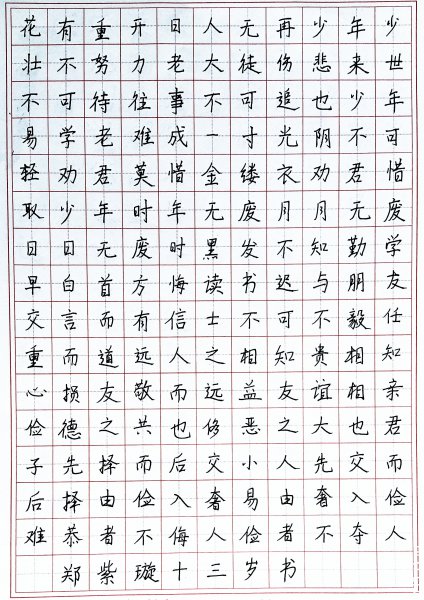 花有重开日人无再少年少
壮不努力老大徒伤悲来世
不可待往事不可追也少年
易学老难成一寸光阴不可
轻劝君莫惜金缕衣劝君惜
取少年时年无废月月无废
日日无废时黑发不知勤学
早白首方悔读书迟与朋友
交言而有信士不可不毅任
重而道远人之相知贵相知
心损友敬而远益友谊相亲
俭德之共也侈恶之大也君
子先择而后交小人先交而
后择由俭入奢易由奢入俭
难恭者不侮人俭者不夺人
郑紫璇十三岁书